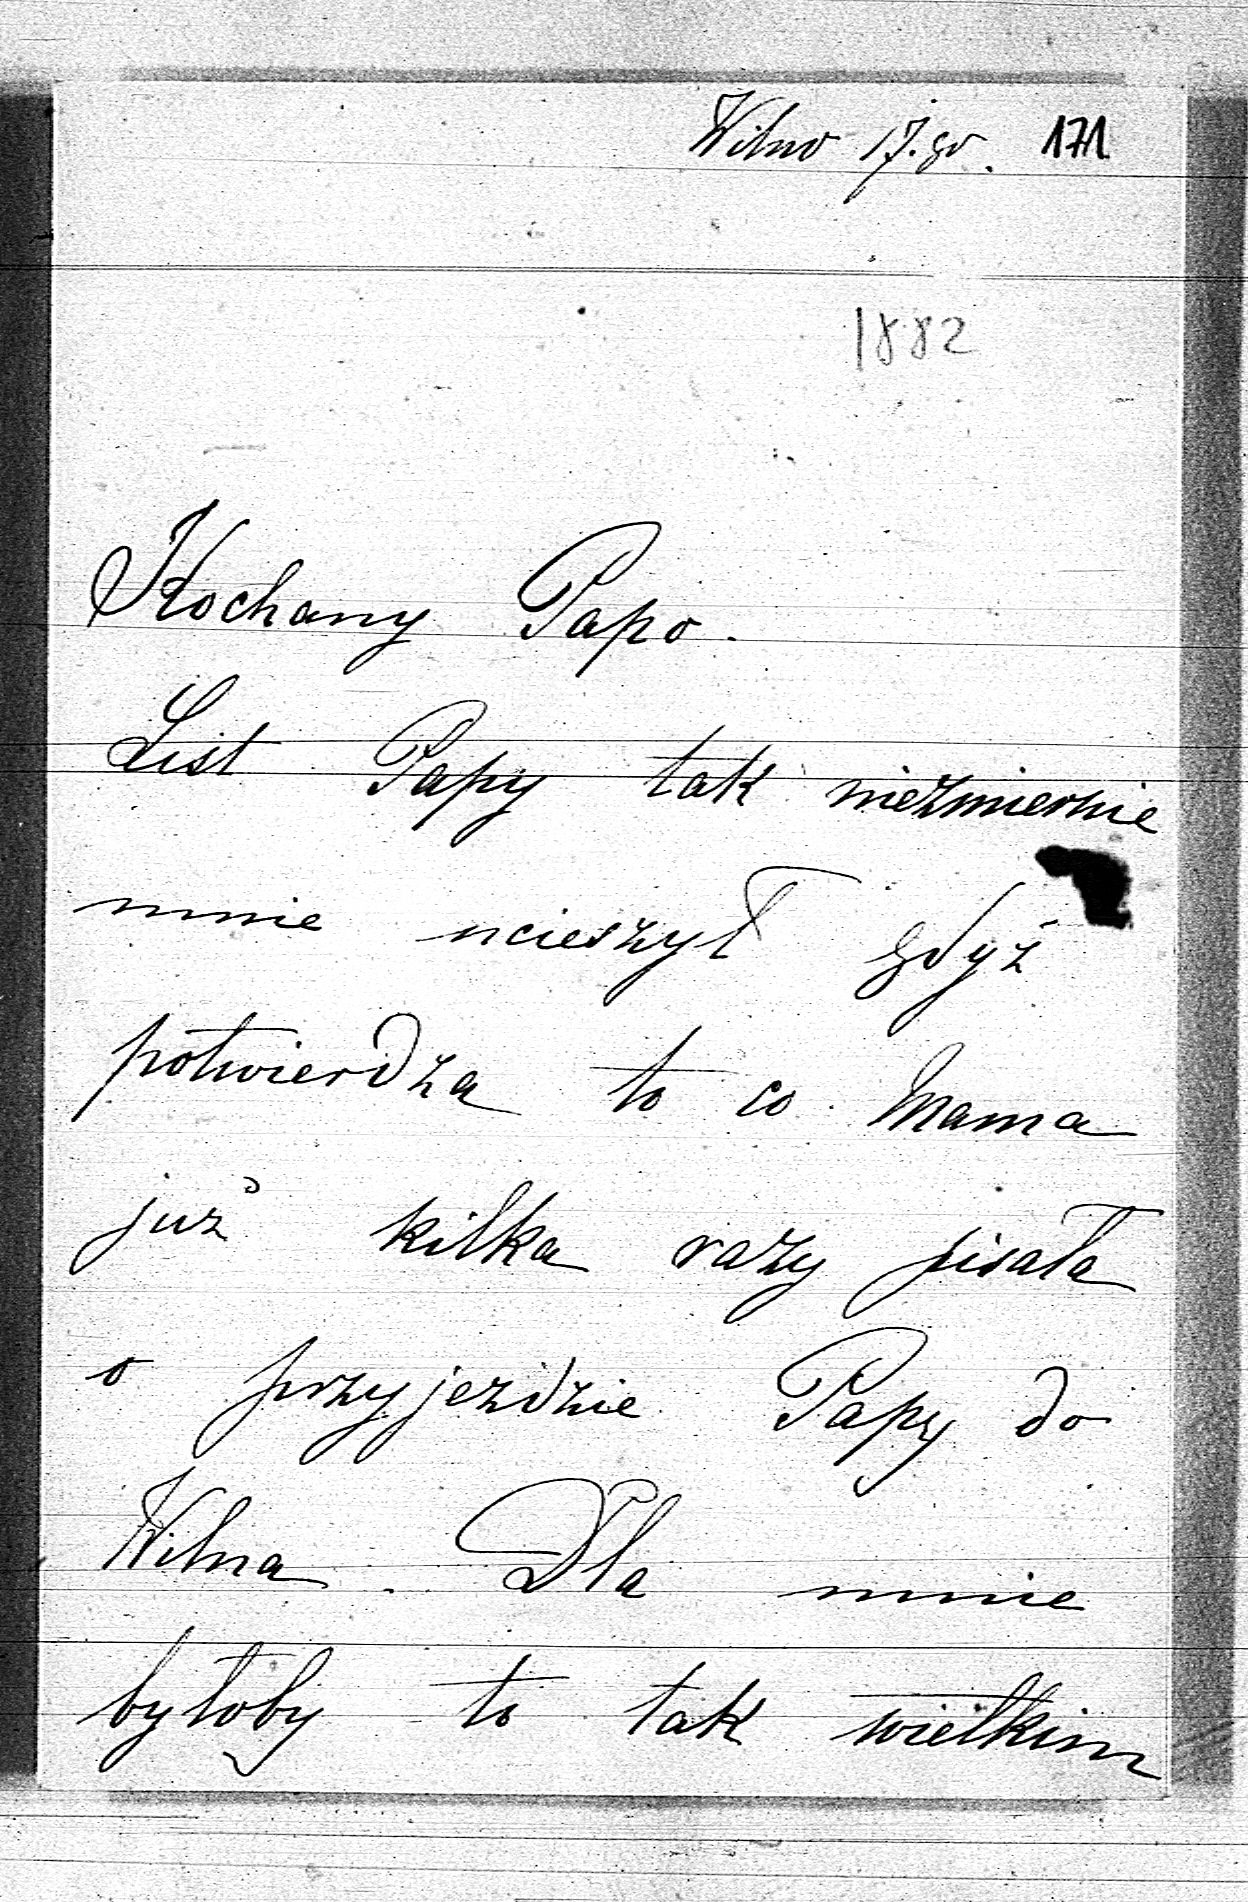 Wilno 17.go. 171
1882
Kochany Papo.
List Papy tak niezmiernie
mnie ucieszył gdyż
potwierdza to co Mama
już kilka razy pisała
o przyjezdzie Papy do
Wilna. Dla mnie
byłoby to tak wielkim